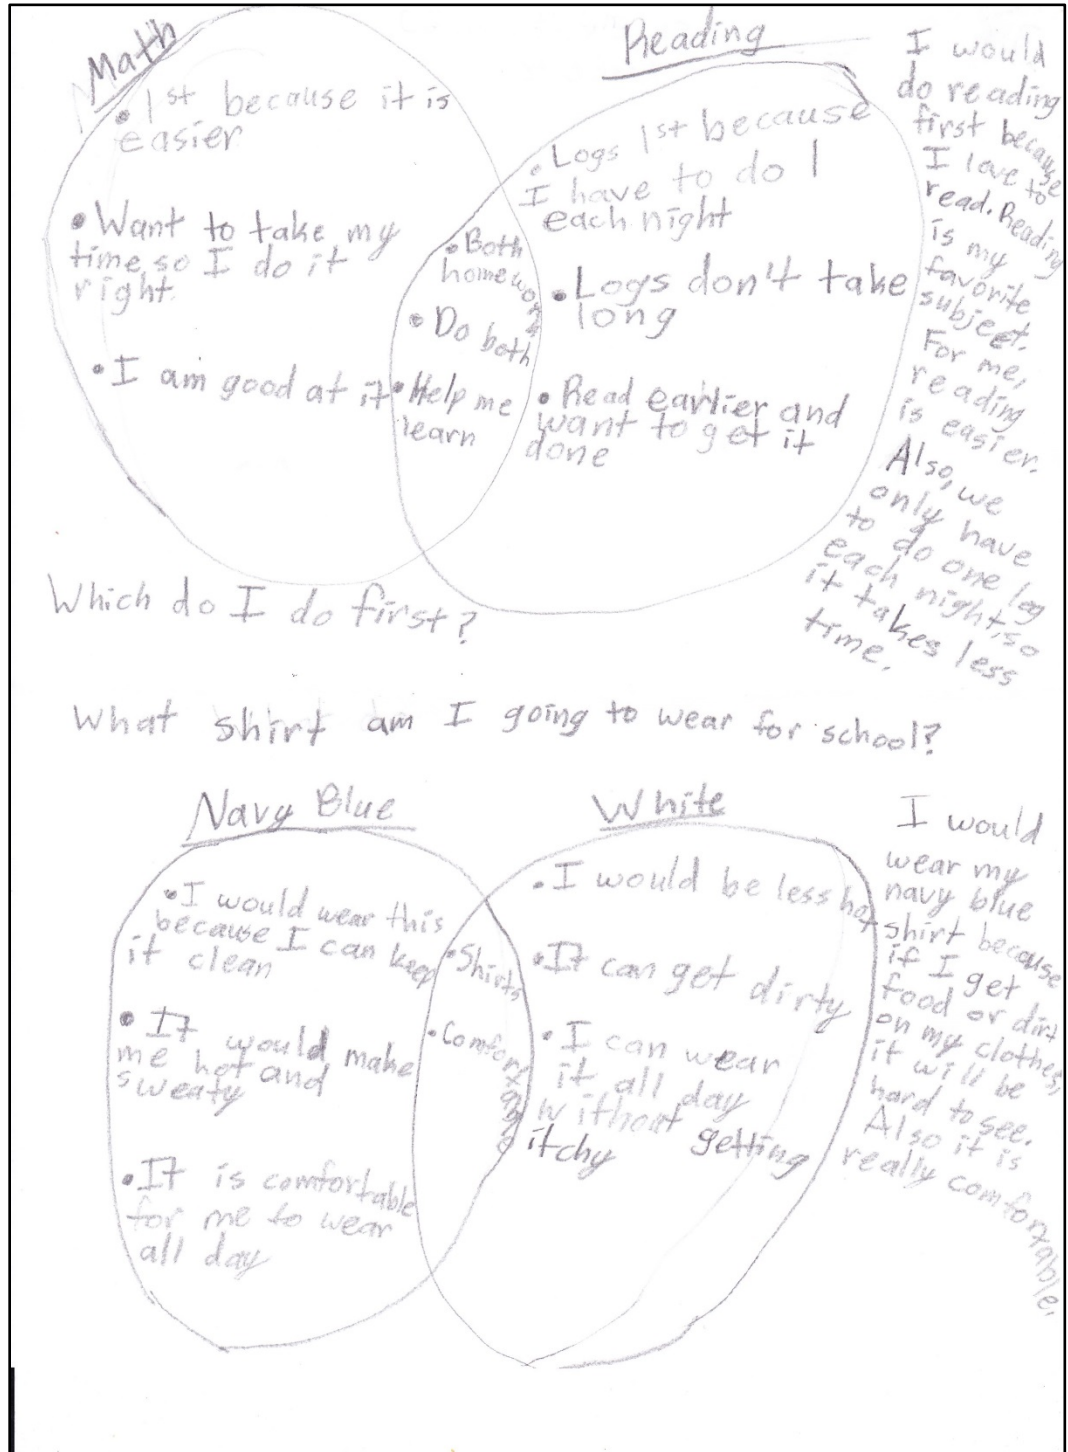 Math
• 1st because it is
easier
• Want to take my
time, so I do it
right.
• I am good at it
• Both
homework
• Do both
• Help me
learn
Reading
• Logs 1st because
I have to do 1
each night
• Logs don't take
long
• Read earlier and
want to get it
done
I would
do reading
first because
I love to
read. Reading
is my
favorite
subject.
For me,
reading
is easier.
Also, we
only have
to do one log
each night, so
it takes less
time.
Which do I do first?
What shirt am I going to wear for school?
Navy Blue
• I would wear this
because I can keep
it clean
• It would make
me hot and
sweaty
• It is comfortable
for me to wear
all day
• Shirts
• Comfortable
White
• I would be less hot
• It can get dirty
• I can wear
it all day
without getting
itchy
I would
wear my
navy blue
shirt because
if I get
food or dirt
on my clothes,
it will be
hard to see.
Also it is
really comfortable.